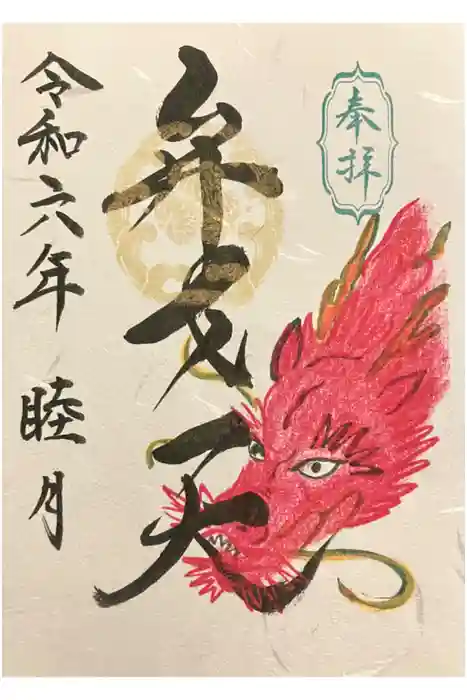 奉拝
弁才天
令和六年 睦月